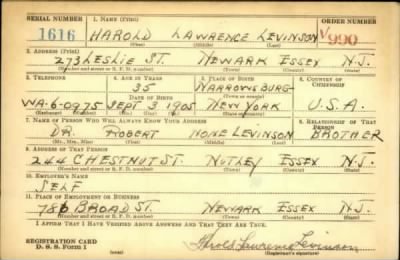 SERIAL NUMBER 1. NAME (Print) ORDER NUMBER
1616 HAROLD LAWRENCE LEVINSON V990
(First) (Middle) (Last)
2. ADDRESS (Print)
273 LESLIE ST. NEWARK ESSEX N.J.
(Number and street or R. F. D. number) (Town) (County) (State)
3. TELEPHONE 4. AGE IN YEARS 5. PLACE OF BIRTH 6. COUNTRY OF CITIZENSHIP
35 NARROWSBURG
DATE OF BIRTH (Town or county)
WA-6-0975 SEPT 3 1905 NEW YORK U.S.A.
(Exchange) (Number) (Mo.) (Day) (Yr.) (State or country)
7. NAME OF PERSON WHO WILL ALWAYS KNOW YOUR ADDRESS 8. RELATIONSHIP OF THAT PERSON
DR. ROBERT NONE LEVINSON BROTHER
(Mr., Mrs., Miss) (First) (Middle) (Last)
9. ADDRESS OF THAT PERSON
244 CHESTNUT ST. NUTLEY ESSEX N.J.
(Number and street or R. F. D. number) (Town) (County) (State)
10. EMPLOYER'S NAME
SELF
11. PLACE OF EMPLOYMENT OR BUSINESS
786 BROAD ST. NEWARK ESSEX N.J.
(Number and street or R. F. D. number) (Town) (County) (State)
I AFFIRM THAT I HAVE VERIFIED ABOVE ANSWERS AND THAT THEY ARE TRUE.
REGISTRATION CARD
D. S. S. Form 1 Harold Lawrence Levinson
(Registrant's signature)